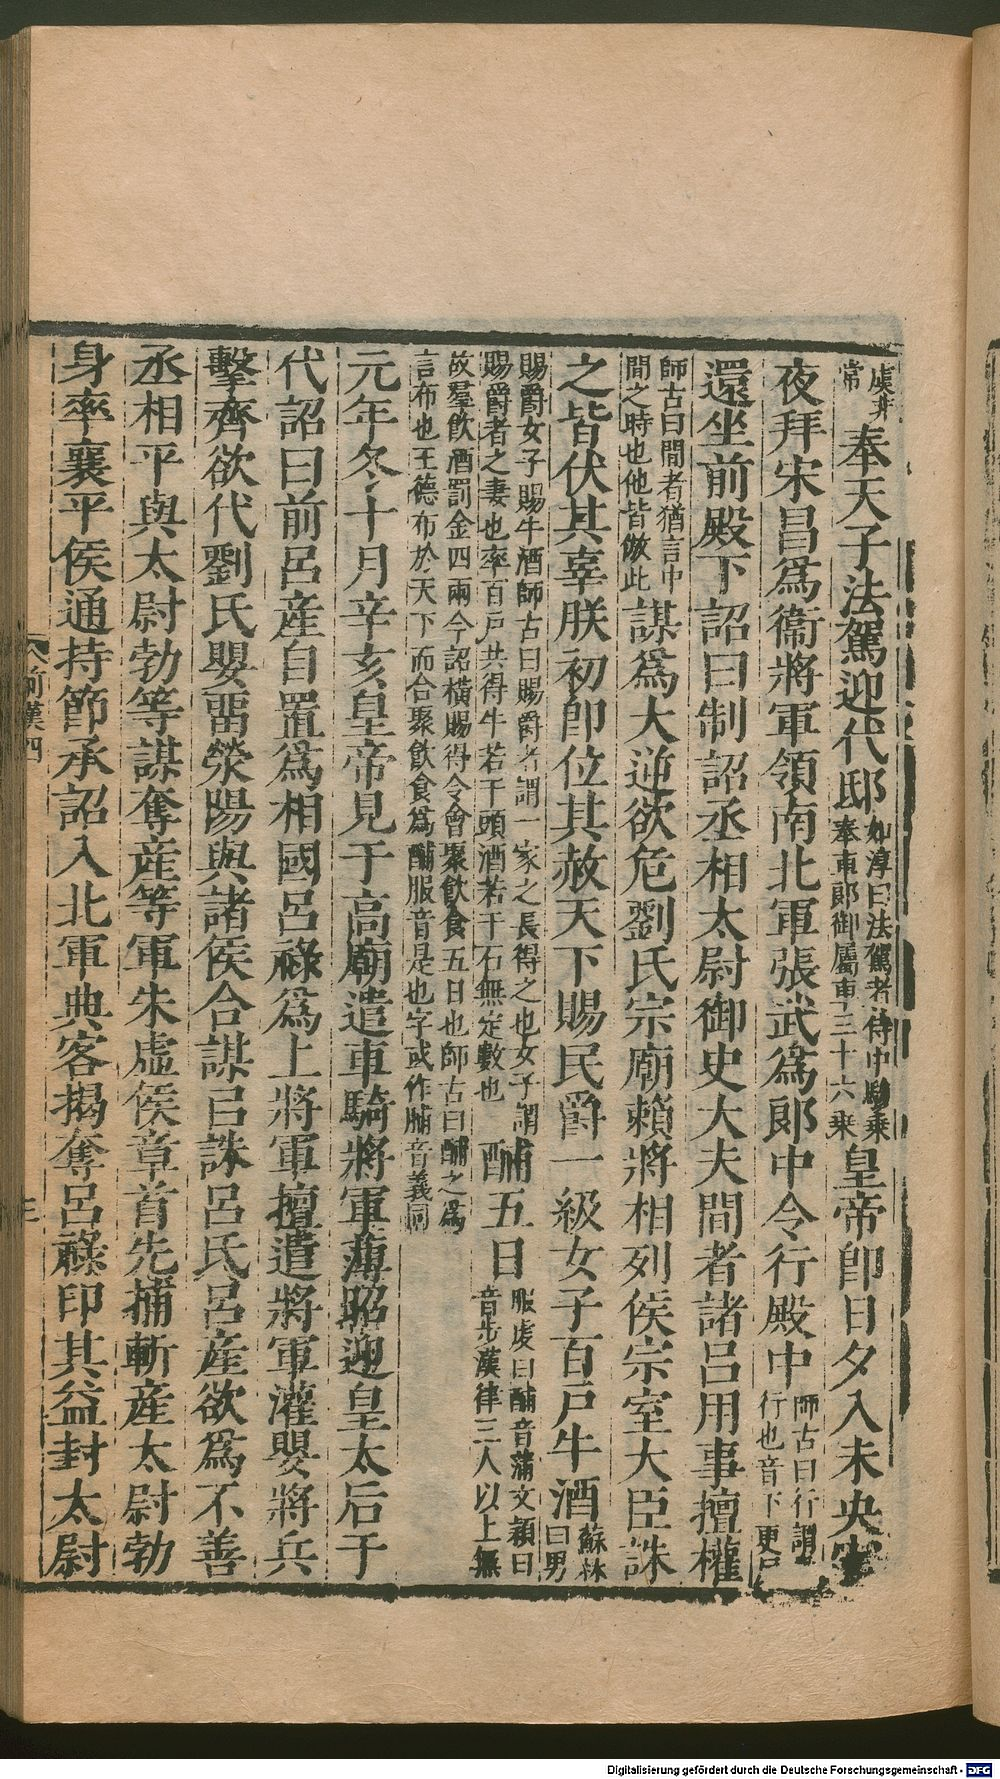 虔井常奉天子法駕迎代邸如淳曰法駕者侍中驂乗奉車郎御屬車三十六乗皇帝即日夕入未央宮
夜拜宋昌為衞將軍領南北軍張武為郎中令行殿中師古曰行謂行也音下更
還坐前殿下詔曰制詔丞相太尉御史大夫間者諸呂用事擅權
師古曰間者猶言中間之時也他皆倣此謀為大逆欲危劉氏宗廟賴將相列侯宗室大臣誅
之皆伏其辜朕初即位其赦天下賜民爵一級女子百戶牛酒蘇林曰男
賜爵女子賜牛酒師古曰賜爵者謂一家之長得之也女子謂賜爵者之妻也率百戶共得牛若干頭酒若干石無定數也酺五日服虔曰酺音蒲文穎曰音步漢律三人以上無
故羣飲酒罰金四兩今詔橫賜得令會聚飲食五日也師古曰酺之為言布也王德布於天下而合聚飲食為酺服音是也字或作脯音義同
元年冬十月辛亥皇帝見于高廟遣車騎將軍薄昭迎皇太后于
代詔曰前呂產自置為相國呂祿為上將軍擅遣將軍灌嬰將兵
擊齊欲代劉氏嬰畱滎陽與諸侯合謀㠯誅呂氏呂產欲為不善
丞相平與太尉勃等謀奪產等軍朱虛侯章首先捕斬產太尉勃
身率襄平侯通持節承詔入北軍典客揭奪呂祿印其益封太尉
前漢四
三
Digitalisierung gefördert durch die Deutsche Forschungsgemeinschaft - DFG